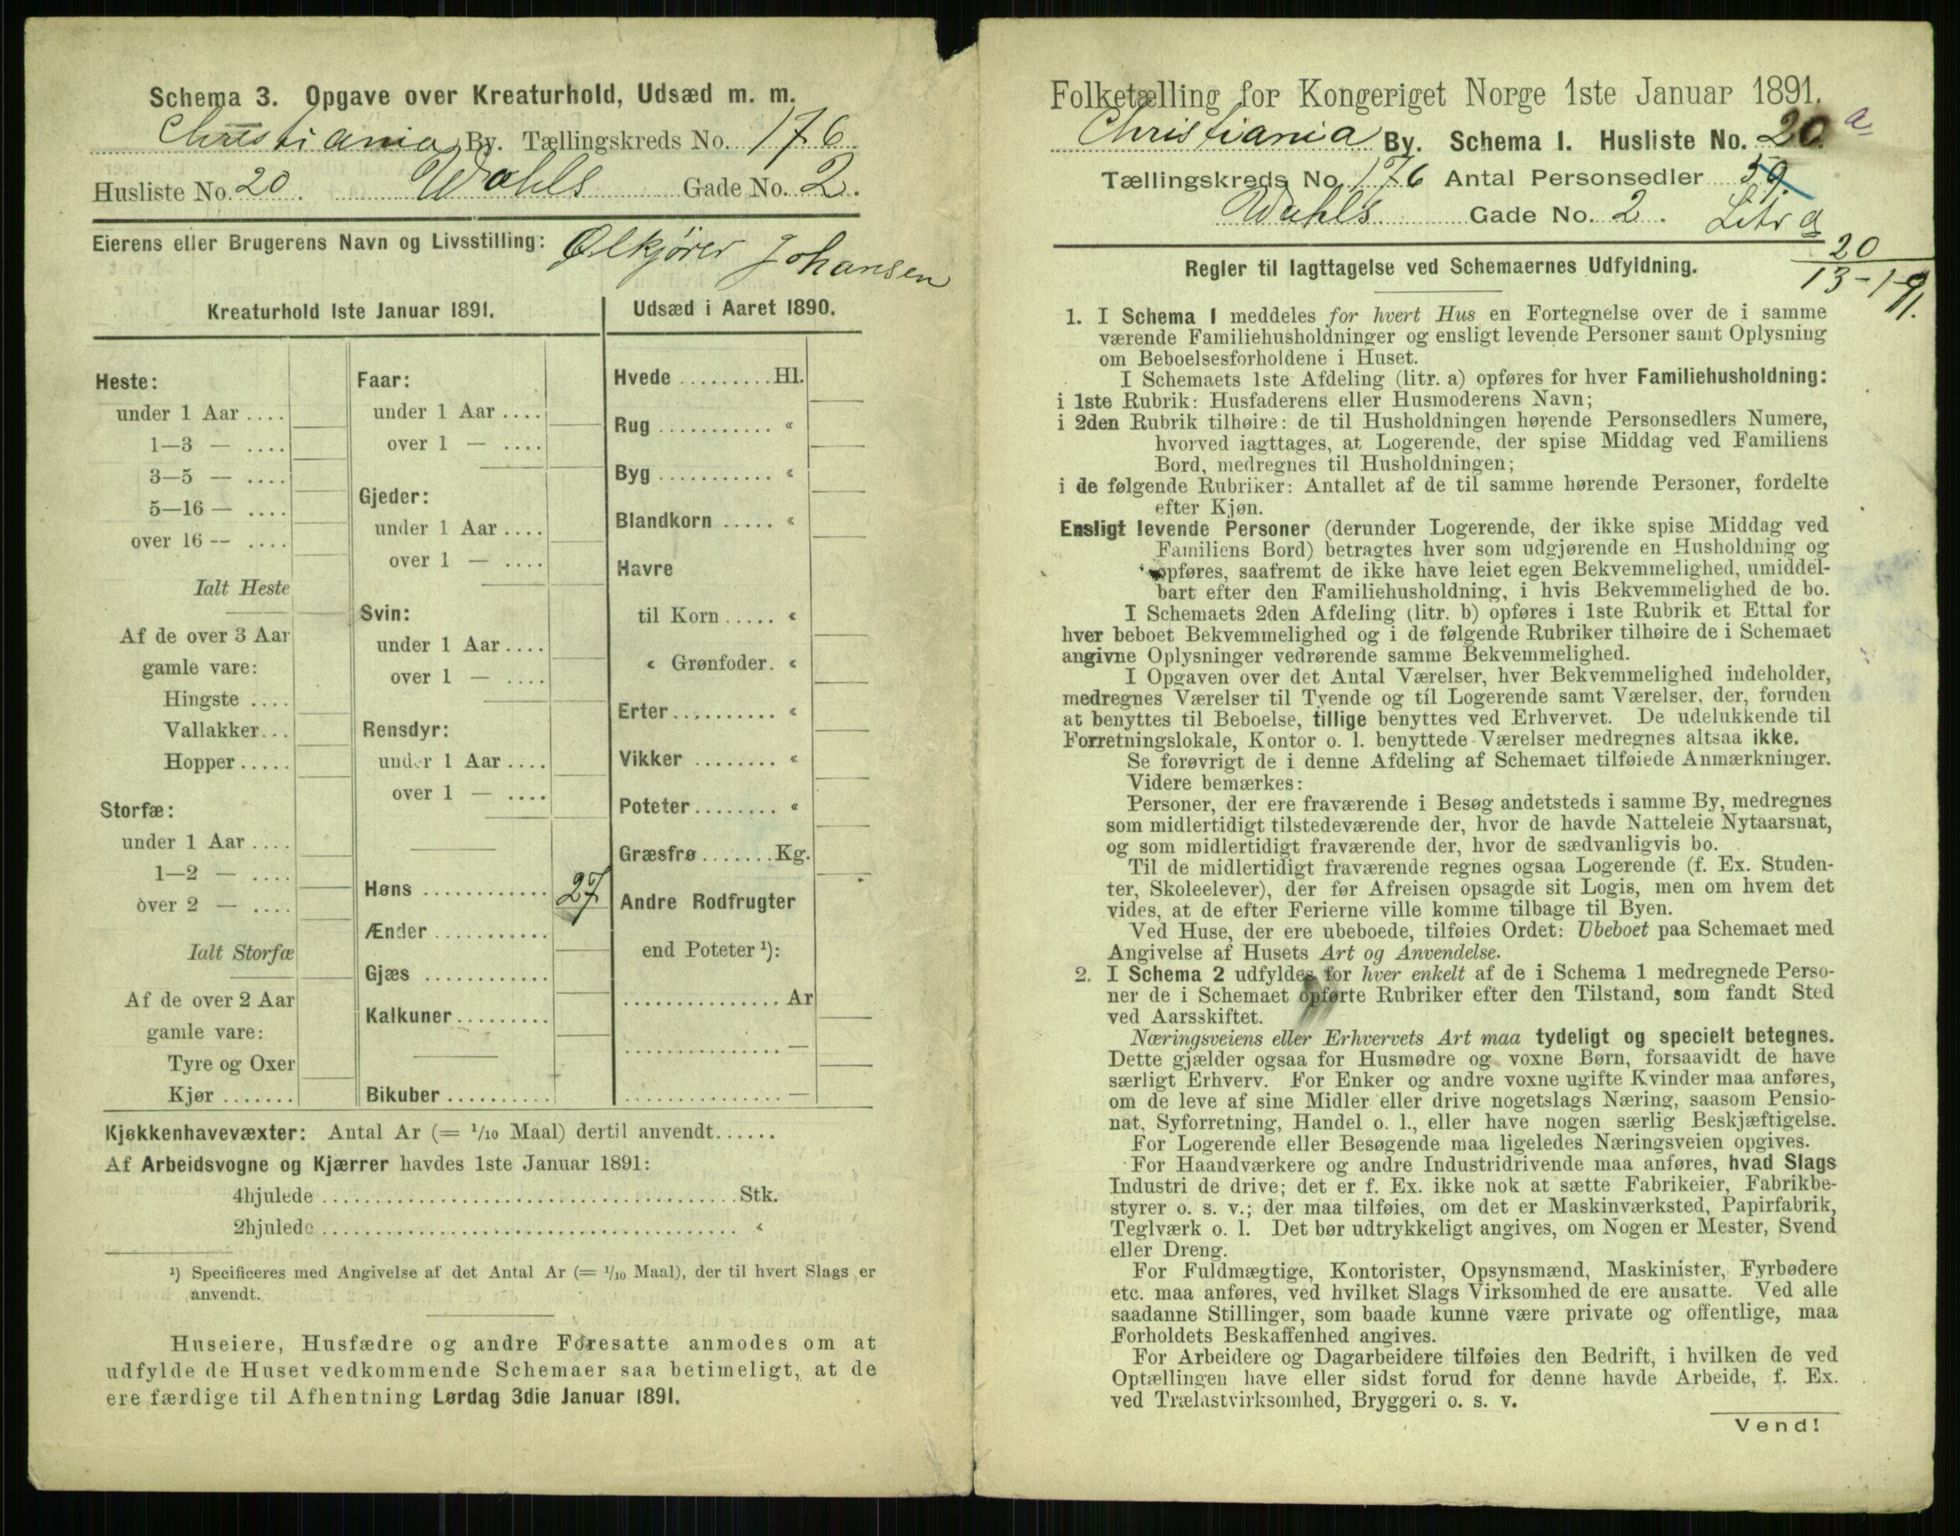 Schema 3. Opgave over Kreaturhold, Udsæd m. m.
Christiania By. Tællingskreds No. 176
Husliste No. 20. Wahls Gade No. 2.
Eierens eller Brugerens Navn og Livsstilling: Ølkjører Johansen
Kreaturhold 1ste Januar 1891.
Heste:
under 1 Aar ....
1—3 — ....
3—5 — ....
5—16 — ....
over 16 -- ....
Ialt Heste
Af de over 3 Aar
gamle vare:
Hingste ....
Vallakker...
Hopper.....
Storfæ:
under 1 Aar ....
1—2 — ....
over 2 — ....
Ialt Storfæ
Af de over 2 Aar
gamle vare:
Tyre og Oxer
Kjør .......
Faar:
under 1 Aar ....
over 1 — ....
Gjeder:
under 1 Aar ....
over 1 — ....
Svin:
under 1 Aar ....
over 1 — ....
Rensdyr:
under 1 Aar ....
over 1 — ....
Høns ............ 27
Ænder ...........
Gjæs ............
Kalkuner.........
Bikuber ..........
Udsæd i Aaret 1890.
Hvede .........Hl.
Rug ........... «
Byg ........... «
Blandkorn ..... «
Havre
til Korn ..... «
« Grønfoder. «
Erter.......... «
Vikker ........ «
Poteter........ «
Græsfrø.......Kg.
Andre Rodfrugter
end Poteter ¹):
...............Ar
...............—
...............—
Kjøkkenhavevæxter: Antal Ar (= 1/10 Maal) dertil anvendt......
Af Arbeidsvogne og Kjærrer havdes 1ste Januar 1891:
4hjulede ........................................Stk.
2hjulede ........................................ «
¹) Specificeres med Angivelse af det Antal Ar (= 1/10 Maal), der til hvert Slags er
anvendt.
Huseiere, Husfædre og andre Foresatte anmodes om at
udfylde de Huset vedkommende Schemaer saa betimeligt, at de
ere færdige til Afhentning Lørdag 3die Januar 1891.
Folketælling for Kongeriget Norge 1ste Januar 1891.
Christiania By. Schema I. Husliste No. 20. a
Tællingskreds No. 176 Antal Personsedler 59.
Wahls Gade No. 2. Litr a
20
13-1-91.
Regler til Iagttagelse ved Schemaernes Udfyldning.
1. I Schema 1 meddeles for hvert Hus en Fortegnelse over de i samme
værende Familiehusholdninger og ensligt levende Personer samt Oplysning
om Beboelsesforholdene i Huset.
I Schemaets 1ste Afdeling (litr. a) opføres for hver Familiehusholdning:
i 1ste Rubrik: Husfaderens eller Husmoderens Navn;
i 2den Rubrik tilhøire: de til Husholdningen hørende Personsedlers Numere,
hvorved iagttages, at Logerende, der spise Middag ved Familiens
Bord, medregnes til Husholdningen;
i de følgende Rubriker: Antallet af de til samme hørende Personer, fordelte
efter Kjøn.
Ensligt levende Personer (derunder Logerende, der ikke spise Middag ved
Familiens Bord) betragtes hver som udgjørende en Husholdning og
opføres, saafremt de ikke have leiet egen Bekvemmelighed, umiddel-
bart efter den Familiehusholdning, i hvis Bekvemmelighed de bo.
I Schemaets 2den Afdeling (litr. b) opføres i 1ste Rubrik et Ettal for
hver beboet Bekvemmelighed og i de følgende Rubriker tilhøire de i Schemaet
angivne Oplysninger vedrørende samme Bekvemmelighed.
I Opgaven over det Antal Værelser, hver Bekvemmelighed indeholder,
medregnes Værelser til Tyende og til Logerende samt Værelser, der, foruden
at benyttes til Beboelse, tillige benyttes ved Erhvervet. De udelukkende til
Forretningslokale, Kontor o. l. benyttede Værelser medregnes altsaa ikke.
Se forøvrigt de i denne Afdeling af Schemaet tilføiede Anmærkninger.
Videre bemærkes:
Personer, der ere fraværende i Besøg andetsteds i samme By, medregnes
som midlertidigt tilstedeværende der, hvor de havde Natteleie Nytaarsnat,
og som midlertidigt fraværende der, hvor de sædvanligvis bo.
Til de midlertidigt fraværende regnes ogsaa Logerende (f. Ex. Studen-
ter, Skoleelever), der før Afreisen opsagde sit Logis, men om hvem det
vides, at de efter Ferierne ville komme tilbage til Byen.
Ved Huse, der ere ubeboede, tilføies Ordet: Ubeboet paa Schemaet med
Angivelse af Husets Art og Anvendelse.
2. I Schema 2 udfyldes for hver enkelt af de i Schema 1 medregnede Perso-
ner de i Schemaet opførte Rubriker efter den Tilstand, som fandt Sted
ved Aarsskiftet.
Næringsveiens eller Erhvervets Art maa tydeligt og specielt betegnes.
Dette gjælder ogsaa for Husmødre og voxne Børn, forsaavidt de have
særligt Erhverv. For Enker og andre voxne ugifte Kvinder maa anføres,
om de leve af sine Midler eller drive nogetslags Næring, saasom Pensio-
nat, Syforretning, Handel o. l., eller have nogen særlig Beskjæftigelse.
For Logerende eller Besøgende maa ligeledes Næringsveien opgives.
For Haandværkere og andre Industridrivende maa anføres, hvad Slags
Industri de drive; det er f. Ex. ikke nok at sætte Fabrikeier, Fabrikbe-
styrer o. s. v.; der maa tilføies, om det er Maskinværksted, Papirfabrik,
Teglværk o. l. Det bør udtrykkeligt angives, om Nogen er Mester, Svend
eller Dreng.
For Fuldmægtige, Kontorister, Opsynsmænd, Maskinister, Fyrbødere
etc. maa anføres, ved hvilket Slags Virksomhed de ere ansatte. Ved alle
saadanne Stillinger, som baade kunne være private og offentlige, maa
Forholdets Beskaffenhed angives.
For Arbeidere og Dagarbeidere tilføies den Bedrift, i hvilken de ved
Optællingen have eller sidst forud for denne havde Arbeide, f. Ex.
ved Trælastvirksomhed, Bryggeri o. s. v.
Vend!